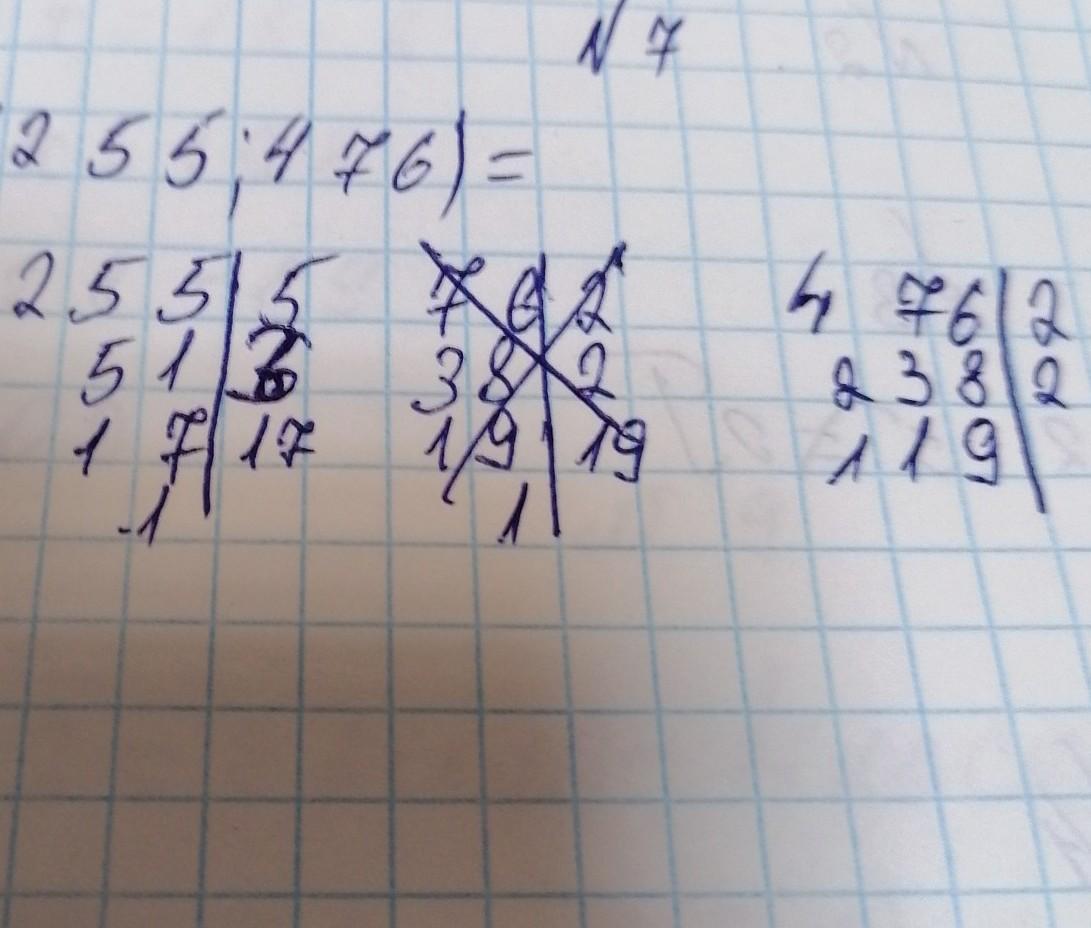 N 7
255;476)=
255|5 76|2 476|2
51|3 38|2 238|2
17|17 19|19 119|
1 1